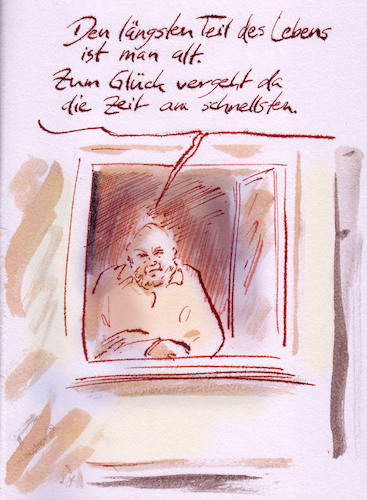 Den längsten Teil des Lebens
ist man alt.
Zum Glück vergeht da
die Zeit am schnellsten.